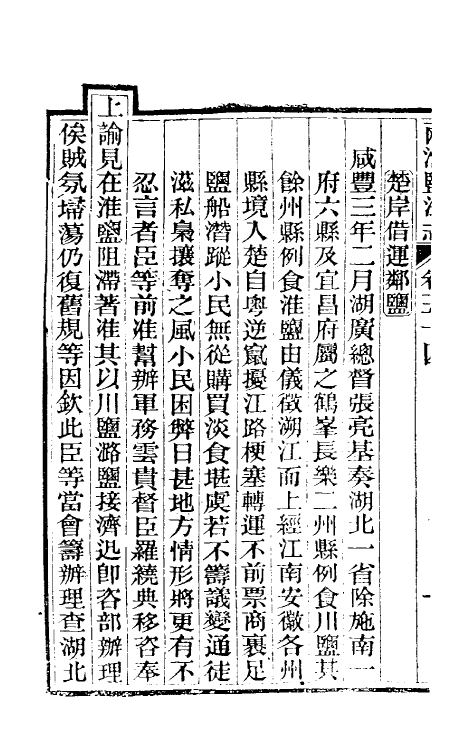 楚岸借運鄰鹽
咸豐三年二月湖廣總督張亮基奏湖北一省除施南一
府六縣及宜昌府屬之鶴峯長樂二州縣例食川鹽其
餘州縣例食淮鹽由儀徵溯江而上經江南安徽各州
縣境入楚自粵逆竄擾江路梗塞轉運不前票商裹足
鹽船潛蹤小民無從購買淡食堪虞若不籌議變通徒
滋私梟攘奪之風小民困弊日甚地方情形將更有不
忍言者臣等前准幫辦軍務雲貴督臣羅繞典移咨奉
上諭見在淮鹽阻滯著准其以川鹽潞鹽接濟迅卽咨部辦理
俟賊氛埽蕩仍復舊規等因欽此臣等當會籌辦理查湖北